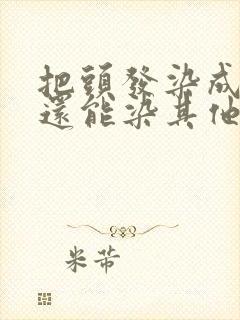 把頭發染成
還能染其他
米芾